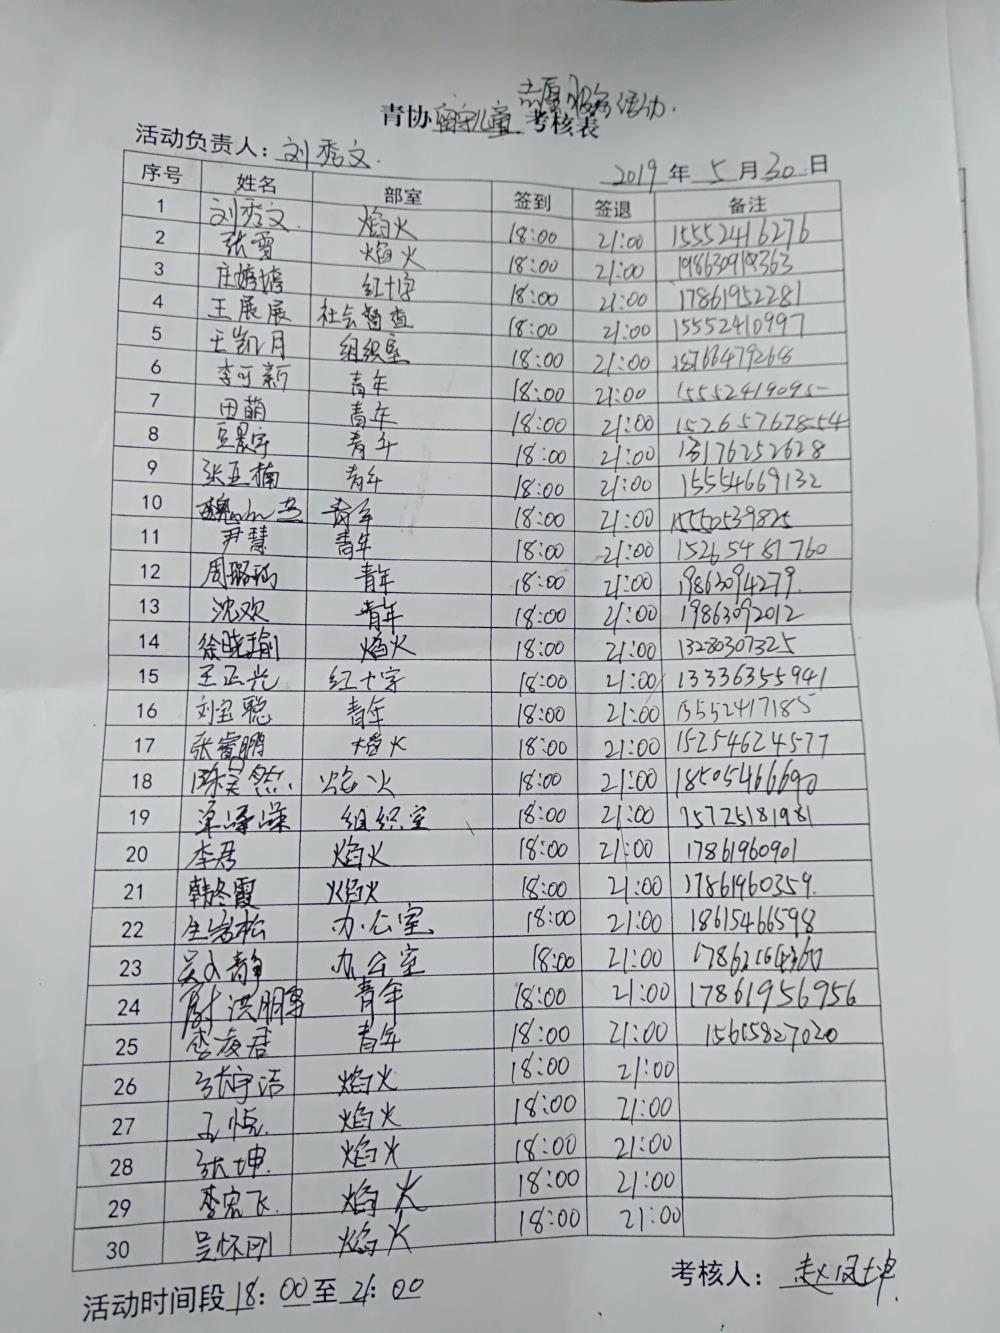 志愿服务活动
青协留守儿童考核表
活动负责人：刘秀文
2019年5月30日
序号 姓名 部室 签到 签退 备注
1 刘秀文 焰火 18:00 21:00 15552416276
2 张雪 焰火 18:00 21:00
3 红十字 18:00 21:00 17861952281
4 王展展 社会督查 18:00 21:00 15552410997
5 王凯月 组织室 18:00 21:00 18766479268
6 李可新 青年 18:00 21:00
7 田萌 青年 18:00 21:00 152657678554
8 青年 18:00 21:00 13176252628
9 张亚楠 青年 18:00 21:00 15554669132
10 青年 18:00 21:00 15550539825
11 尹慧 青年 18:00 21:00 15265481760
12 青年 18:00 21:00 19863094279
13 沈欢 青年 18:00 21:00 19863092012
14 焰火 18:00 21:00 13280307325
15 王正光 红十字 18:00 21:00 13336355941
16 刘宝聪 青年 18:00 21:00 15552417185
17 张睿鹏 焰火 18:00 21:00 15254624577
18 陈昊然 焰火 18:00 21:00 18505466690
19 组织室 18:00 21:00 15725181981
20 李君 焰火 18:00 21:00 17861960901
21 韩冬霞 焰火 18:00 21:00 17861960359
22 办公室 18:00 21:00 18615466598
23 吴文静 办公室 18:00 21:00
24 尉洪 青年 18:00 21:00 17861956956
25 青年 18:00 21:00 15615827020
26 张宇洁 焰火 18:00 21:00
27 孟悦 焰火 18:00 21:00
28 张坤 焰火 18:00 21:00
29 李宏飞 焰火 18:00 21:00
30 吴怀刚 焰火 18:00 21:00
考核人：赵凤坤
活动时间段18:00至21:00